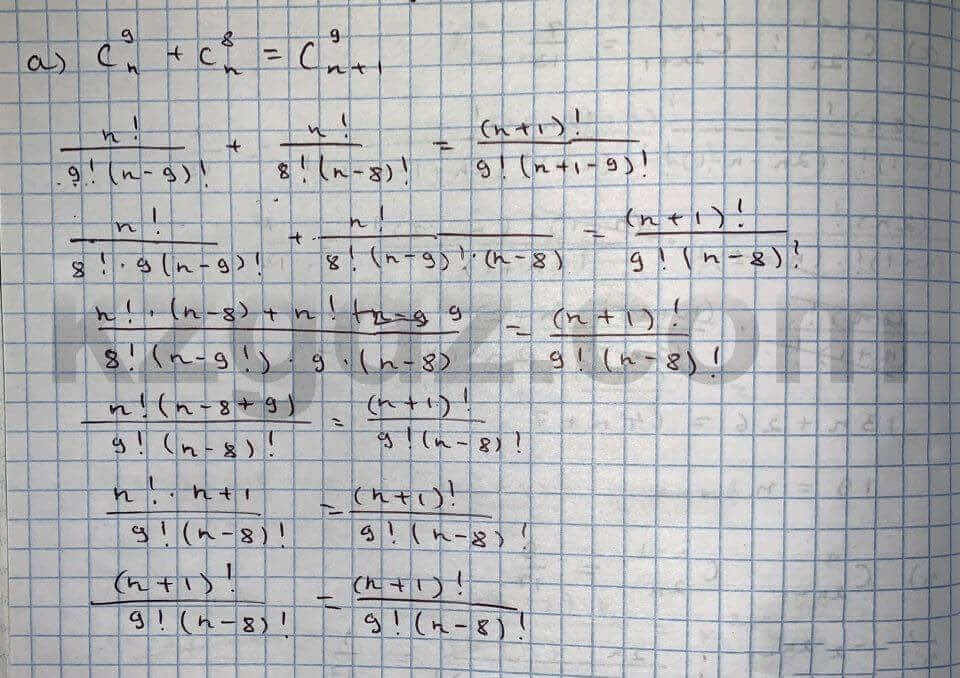 а) C_n^9 + C_n^8 = C_{n+1}^9
n! / 9!(n-9)! + n! / 8!(n-8)! = (n+1)! / 9!(n+1-9)!
n! / 8!·9(n-9)! + n! / 8!(n-9)!·(n-8) = (n+1)! / 9!(n-8)!
n!·(n-8) + n! 9 / 8!(n-9!)·9·(n-8) = (n+1)! / 9!(n-8)!
n!(n-8+9) / 9!(n-8)! = (n+1)! / 9!(n-8)!
n!·n+1 / 9!(n-8)! = (n+1)! / 9!(n-8)!
(n+1)! / 9!(n-8)! = (n+1)! / 9!(n-8)!